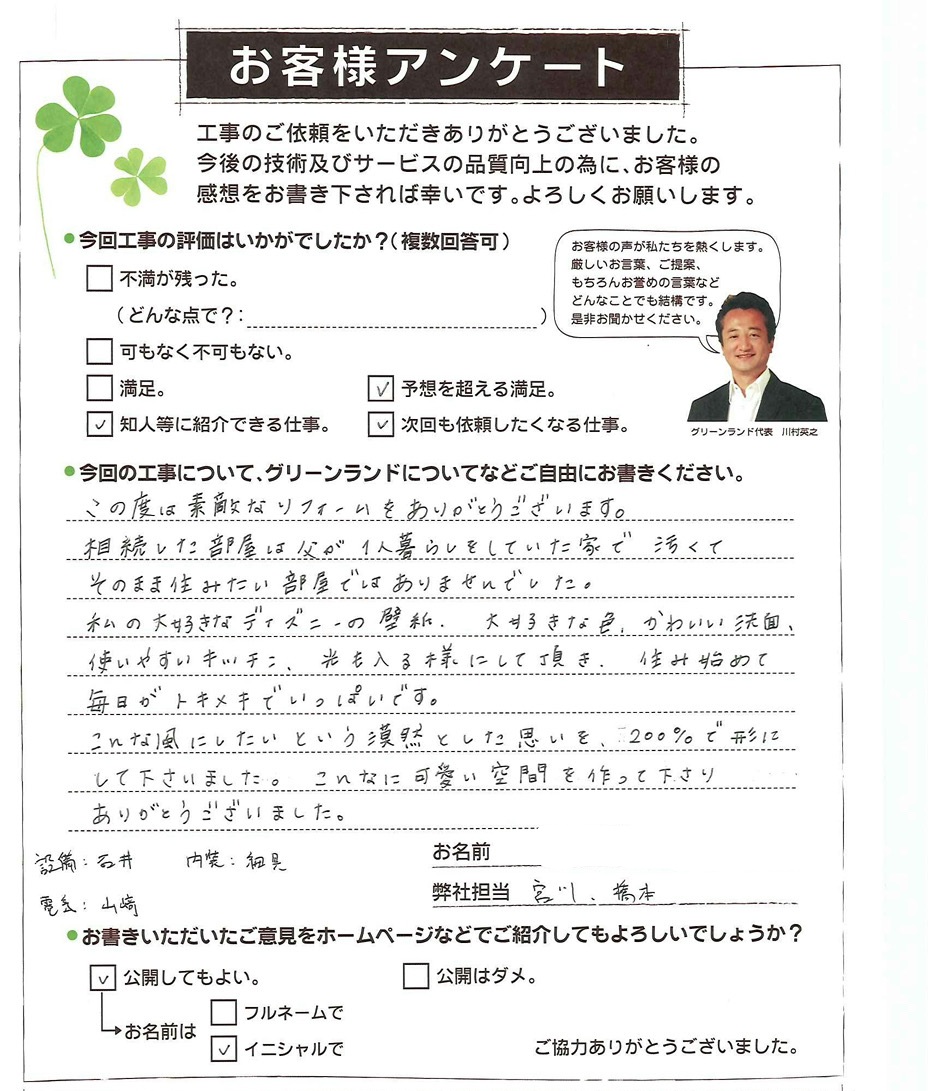 お客様アンケート
工事のご依頼をいただきありがとうございました。
今後の技術及びサービスの品質向上の為に、お客様の
感想をお書き下されば幸いです。よろしくお願いします。
●今回工事の評価はいかがでしたか?(複数回答可)
お客様の声が私たちを熱くします。
厳しいお言葉、ご提案、
もちろんお誉めの言葉など
どんなことでも結構です。
是非お聞かせください。
□ 不満が残った。
(どんな点で?: )
□ 可もなく不可もない。
□ 満足。 ☑ 予想を超える満足。
☑ 知人等に紹介できる仕事。 ☑ 次回も依頼したくなる仕事。
グリーンランド代表 川村英之
●今回の工事について、グリーンランドについてなどご自由にお書きください。
この度は素敵なリフォームをありがとうございます。
相続した部屋は父が1人暮らしをしていた家で 汚くて
そのまま住みたい部屋ではありませんでした。
私の大好きなディズニーの壁紙、大好きな色、かわいい洗面、
使いやすいキッチン、光も入る様にして頂き、住み始めて
毎日がトキメキでいっぱいです。
こんな風にしたいという漠然とした思いを、200%で形に
して下さいました。こんなに可愛い空間を作って下さり
ありがとうございました。
設備:石井 内装:細見
お名前
電気:山崎
弊社担当 宮川、橋本
●お書きいただいたご意見をホームページなどでご紹介してもよろしいでしょうか?
☑ 公開してもよい。 □ 公開はダメ。
→お名前は □ フルネームで
☑ イニシャルで
ご協力ありがとうございました。